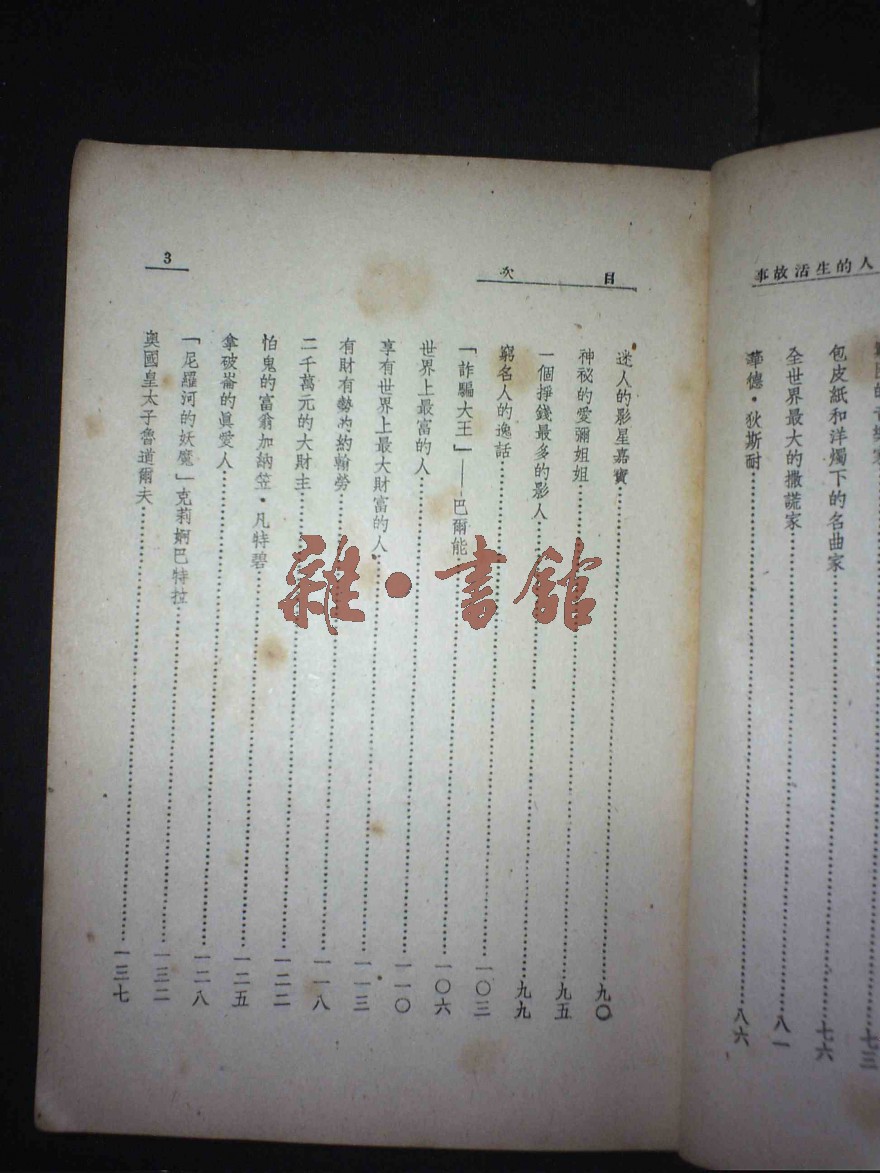 人的生活故事
七三
包皮紙和洋燭下的名曲家……七六
全世界最大的撒謊家……八一
華德·狄斯耐……八六
目次
3
迷人的影星嘉寶……九〇
神祕的愛彌姐姐……九五
一個掙錢最多的影人……九九
窮名人的逸話……一〇三
「詐騙大王」——巴爾能……一〇六
世界上最富的人……一一〇
享有世界上最大財富的人……一一三
有財有勢的約翰勞……一一八
二千萬元的大財主……一二二
怕鬼的富翁加納笠·凡特碧……一二五
拿破崙的眞愛人……一二八
「尼羅河的妖魔」克莉娴巴特拉……一三二
奧國皇太子魯道爾夫……一三七
雜·書館